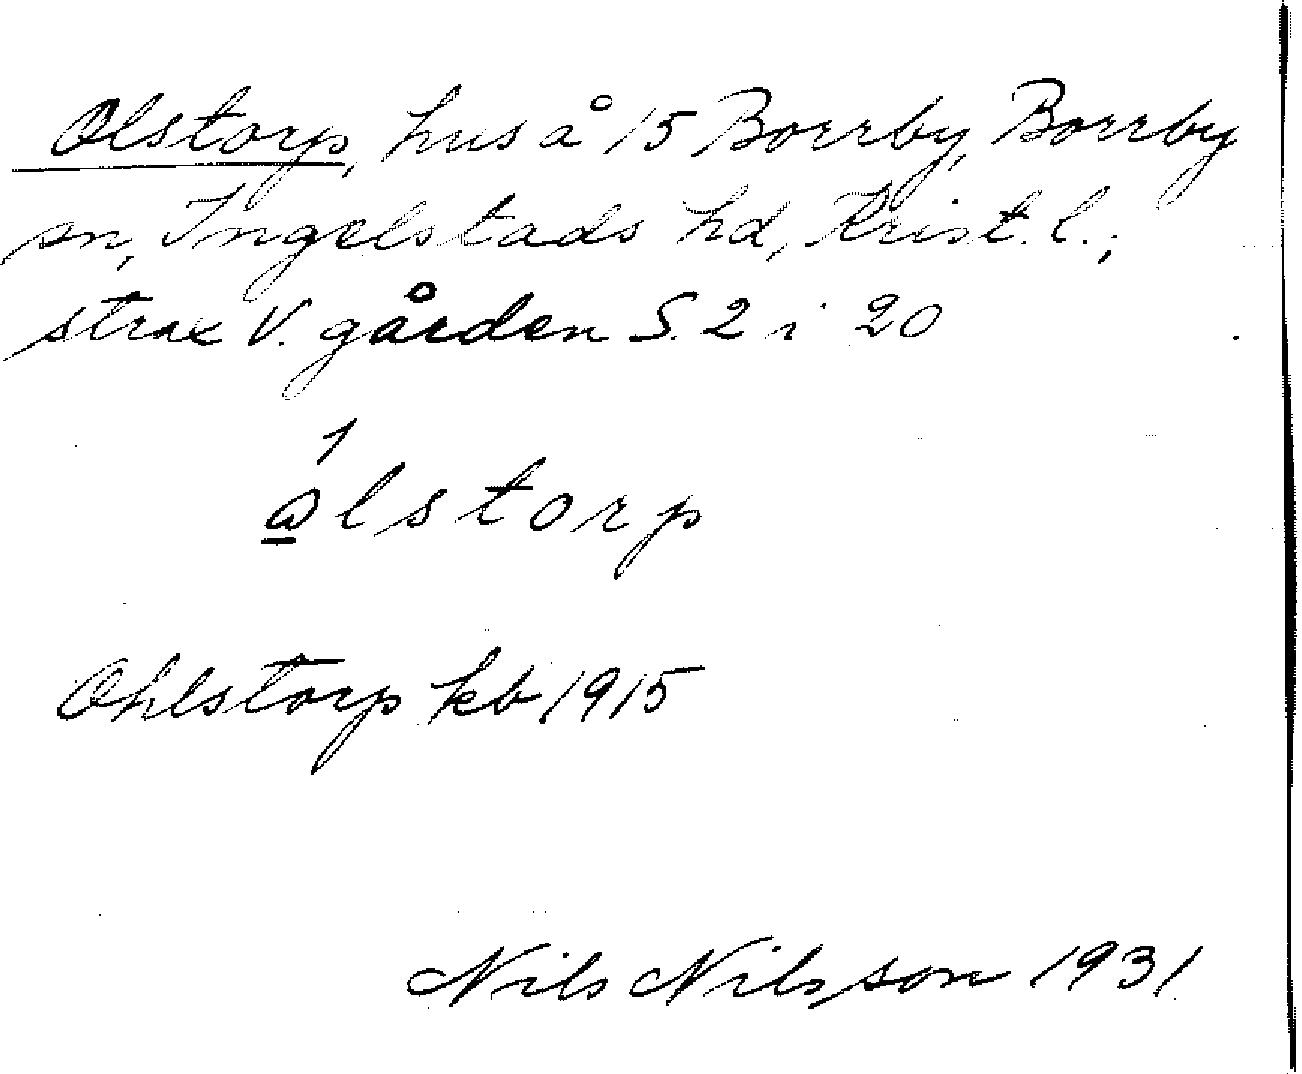 Olstorp, hus å 15 Borrby, Borrby
sn, Ingelstads hd, Krist. l.;
strax V. gården S. 2 i 20
1
ωlstorp
Ohlstorp kb 1915
Nils Nilsson 1931